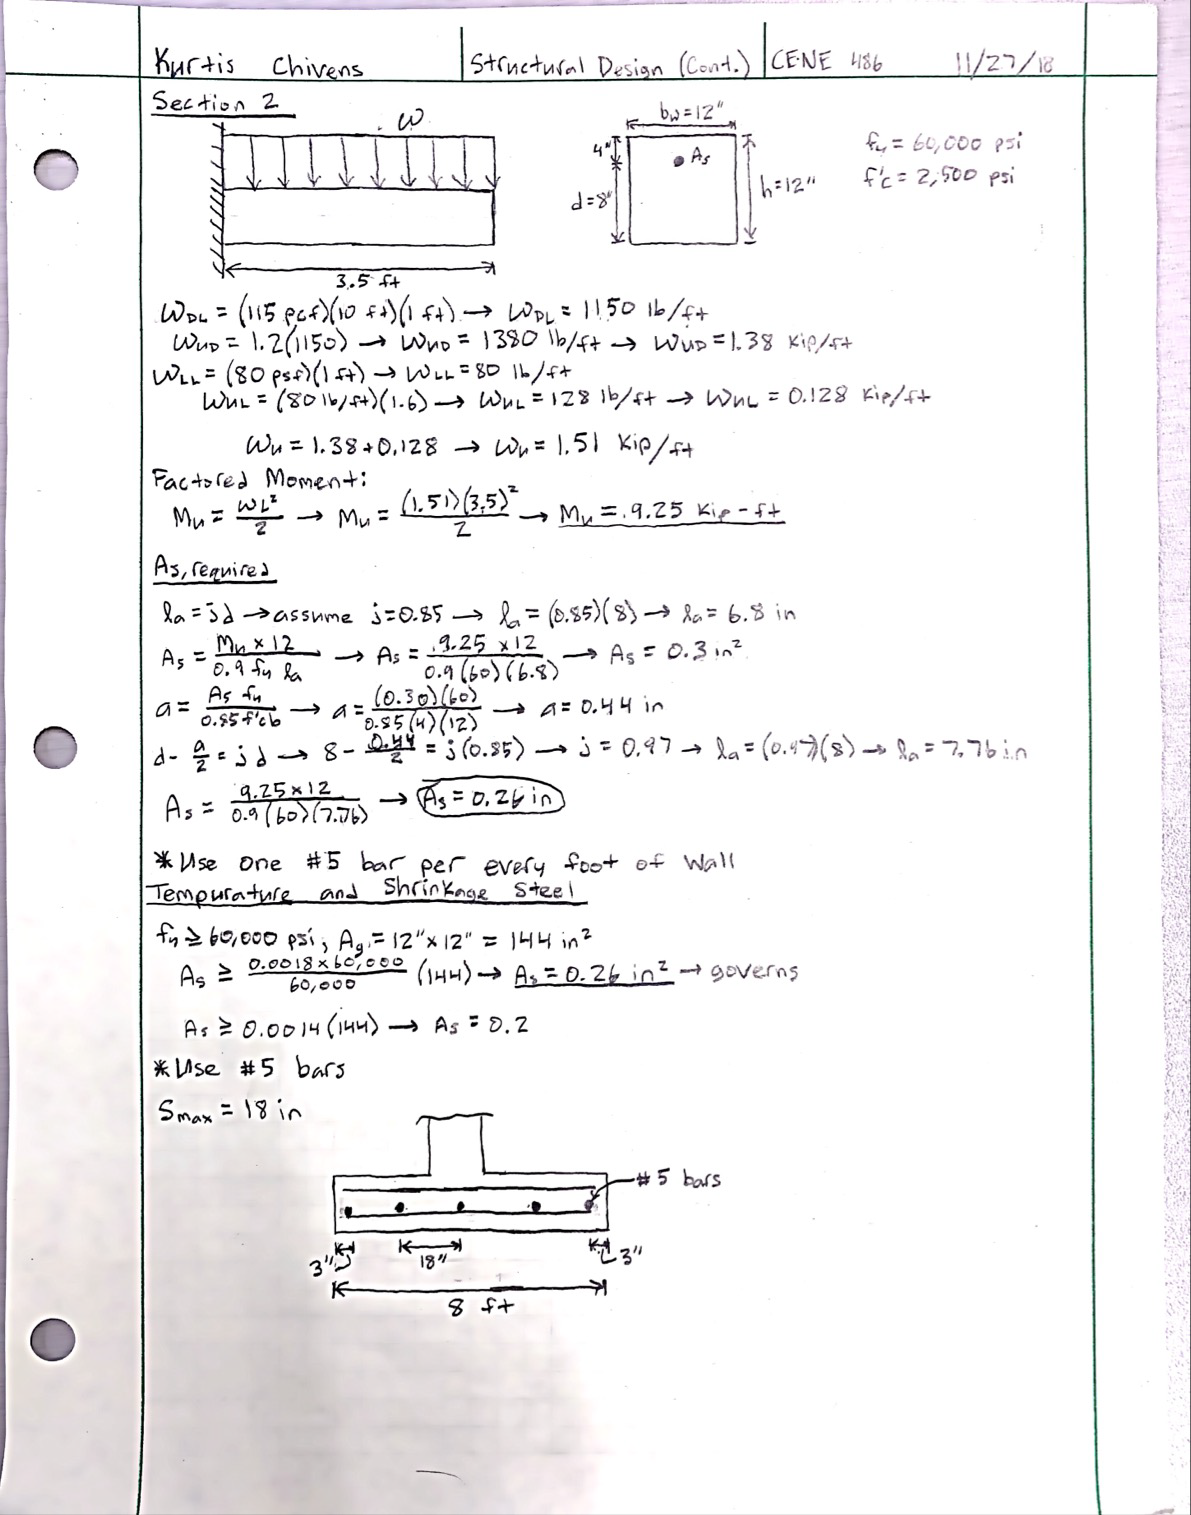 Kurtis Chivens | Structural Design (Cont.) | CENE 486 11/27/18
Section 2
ω
3.5 ft
bw=12"
4"
As
d=8"
h=12"
fy = 60,000 psi
f'c = 2,500 psi
ωDL = (115 pcf)(10 ft)(1 ft) → ωDL = 1150 lb/ft
ωuD = 1.2(1150) → ωuD = 1380 lb/ft → ωuD = 1.38 kip/ft
ωLL = (80 psf)(1 ft) → ωLL = 80 lb/ft
ωuL = (80 lb/ft)(1.6) → ωuL = 128 lb/ft → ωuL = 0.128 kip/ft
ωu = 1.38+0.128 → ωu = 1.51 kip/ft
Factored Moment:
Mu = ωL²/2 → Mu = (1.51)(3.5)²/2 → Mu = 9.25 kip-ft
As, required
la = jd → assume j=0.85 → la = (0.85)(8) → la = 6.8 in
As = Mu x 12 / 0.9 fy la → As = 9.25 x12 / 0.9(60)(6.8) → As = 0.3 in²
a = As fy / 0.85 f'c b → a = (0.30)(60) / 0.85(4)(12) → a = 0.44 in
d- a/2 = jd → 8 - 0.44/2 = j(0.85) → j = 0.97 → la = (0.97)(8) → la = 7.76 in
As = 9.25x12 / 0.9(60)(7.76) → As = 0.26 in
*Use one #5 bar per every foot of Wall
Tempurature and Shrinkage Steel
fy ≥ 60,000 psi; Ag = 12"x12" = 144 in²
As ≥ 0.0018x60,000 / 60,000 (144) → As = 0.26 in² → governs
As ≥ 0.0014(144) → As = 0.2
*Use #5 bars
Smax = 18 in
#5 bars
3"
18"
3"
8 ft